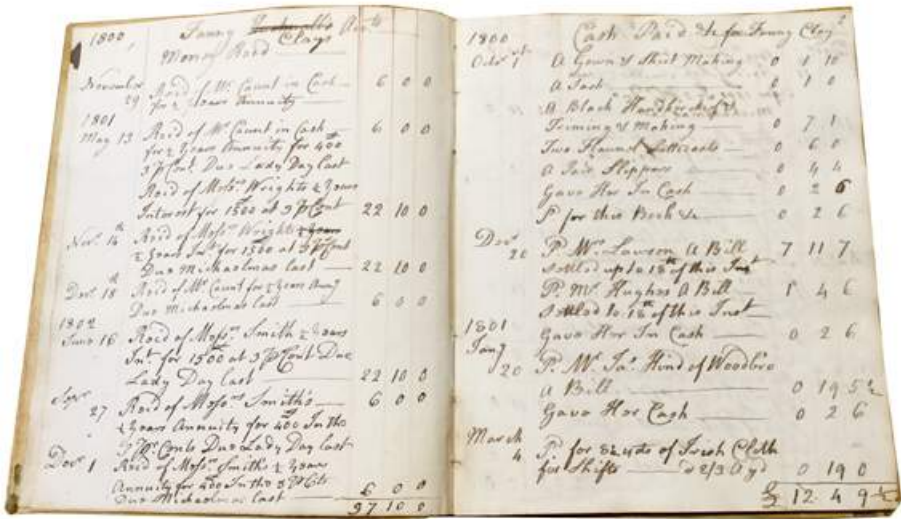 1800 Fanny Clays Acct
Money Recd
November 29 Recd of Mr Caunt in Cash 6 0 0
for ½ Years Annuity
1801
May 13 Recd of Mr Caunt in Cash 6 0 0
for ½ Years Annuity for 400
3 P Cent. Due Lady Day Last
Recd of Messrs Wrights ½ Years
Interest for 1500 at 3 P Cent 22 10 0
Novr 14 Recd of Messrs Wrights ½ Years
½ Years Int. for 1500 at 3 P Cent
Due Michaelmas last 22 10 0
Decr 18th Recd of Mr Caunt for ½ Years Anny
Due Michaelmas last 6 0 0
1802
June 16 Recd of Messrs Smith ½ Years
Int. for 1500 at 3 P Cent Due
Lady Day last 22 10 0
27 Recd of Messrs Smiths 6 0 0
½ Years Annuity for 400 In the
3 P Cents Due Lady Day last
Decr 1 Recd of Messrs Smiths ½ Years
Annuity for 400 In the 3 P Cts
Due Michaelmas last 6 0 0
97 10 0
2
1800 Cash Paid &c for Fanny Clay
Octor 1st A Gown & Shirt Making 0 1 10
A 0 1 0
A Black Handkerchief &
Triming & Making 0 7 1
Two Flannel Petticoats 0 6 0
A Pair Slippers 0 4 4
Gave Her In Cash 0 2 6
P for this Book &c 0 2 6
Decr 20 P. Mr Lawson A Bill 7 11 7
settled up to 18th of this Inst
P. Mr Hughes A Bill 1 4 6
settled to 18th of this Inst
1801 Gave Her In Cash 0 2 6
Jany 20 P. Mr Jas Hind of Woodbro
A Bill 0 19 5½
Gave Her Cash 0 2 6
March 4 P. for 8½ yds of Irish Cloth
for Shifts @ 2/3 A yd 0 19 0
£ 12 4 9½